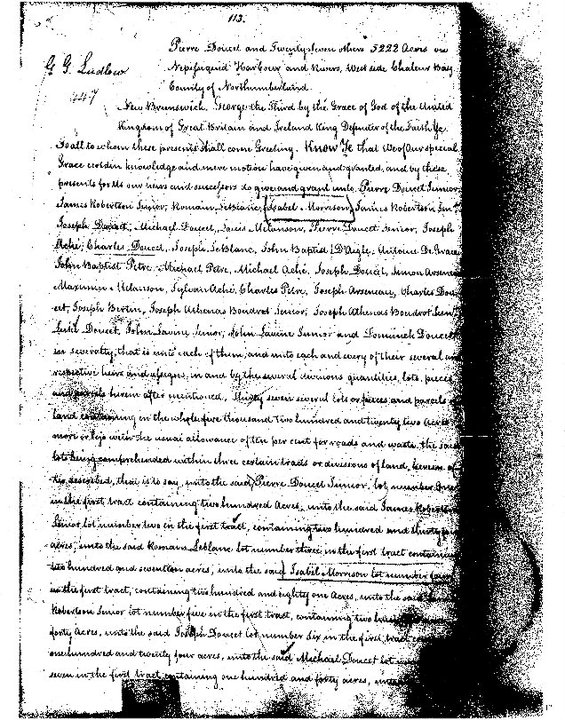 113.
Pierre Doucet and Twentyseven others 5222 Acres on
G. G. Ludlow
Nepisiquid Harbour and Rivers, West side Chaleur Bay
County of Northumberland.
447
New Brunswick. George the Third by the Grace of God of the United
Kingdom of Great Britain and Ireland King Defender of the Faith &c.
To all to whom these presents shall come Greeting. Know Ye that We of our special
Grace certain knowledge and mere motion have given and granted, and by these
presents for Us our heirs and successors do give and grant unto Pierre Doucet Junior
James Robertson Senior, Romain LeBlanc, Isabel Morrison, James Robertson
Joseph Doucet, Michael Doucet, Louis Melanson, Pierre Doucet Senior, Joseph
Aché, Charles Doucet, Joseph LeBlanc, John Baptist D'Aigle, Antoine De Grace
John Baptist Petre, Michael Petre, Michael Aché, Joseph Doucet, Simon Arseneau
Maximin Melanson, Sylvan Aché, Charles Petre, Joseph Arseneau, Charles Dou
cet, Joseph Bertin, Joseph Athenas Boudrot Senior, Joseph Athenas Boudrot
Luke Doucet, John Lavine Senior, John Lavine Junior and Dominick Doucet
in severalty, that is unto each of them, and unto each and every of their several and
respective heirs and assigns, in and by the several divisions quantities, lots, pieces
and parcels herein after mentioned, Thirty seven several lots or pieces and parcels of
land containing in the whole five thousand two hundred and twenty two acres
more or less with the usual allowance of ten per cent for roads and waste, the said
lots being comprehended within three certain tracts or divisions of land, herein af
ter described, that is to say, unto the said Pierre Doucet Junior, lot number One
in the first tract containing two hundred Acres, unto the said James Robertson
Senior lot number two in the first tract, containing two hundred and thirty
acres, unto the said Romain Leblanc lot number three in the first tract containing
two hundred and seventeen acres, unto the said Isabel Morrison lot number four
in the first tract, containing two hundred and eighty one Acres, unto the said
Robertson Junior lot number five in the first tract, containing two
forty Acres, unto the said Joseph Doucet lot number six in the first tract
one hundred and twenty four acres, unto the said Michael Doucet lot
seven in the first tract containing one hundred and forty acres, unto